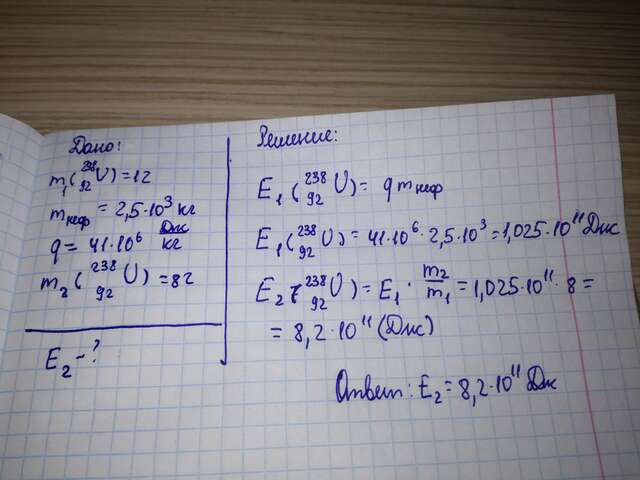 Дано:
m₁(²³⁸₉₂U)=1г
mнеф = 2,5·10³ кг
q = 41·10⁶ Дж/кг
m₂(²³⁸₉₂U)=8г
E₂-?
Решение:
E₁(²³⁸₉₂U)= qmнеф
E₁(²³⁸₉₂U)= 41·10⁶·2,5·10³=1,025·10¹¹Дж
E₂(²³⁸₉₂U)= E₁·m₂/m₁=1,025·10¹¹·8=
= 8,2·10¹¹(Дж)
Ответ: E₂=8,2·10¹¹Дж